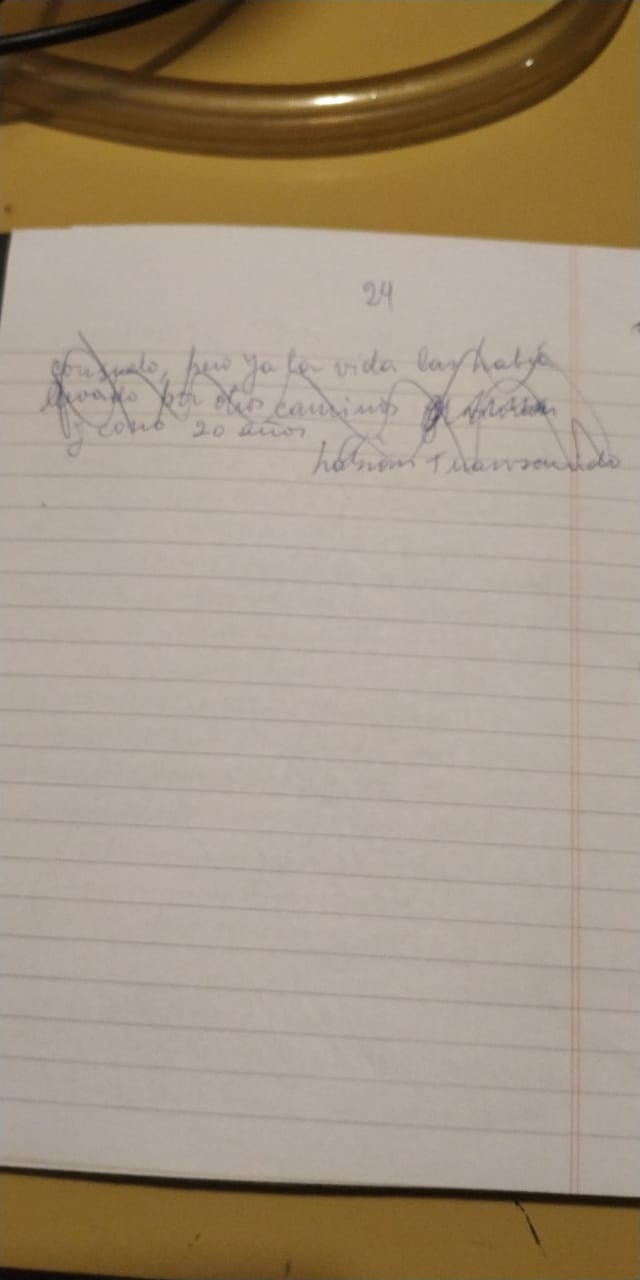 24
consuelo, pero ya la vida las había
llevado por otros caminos
y como 20 años
habían transcurrido